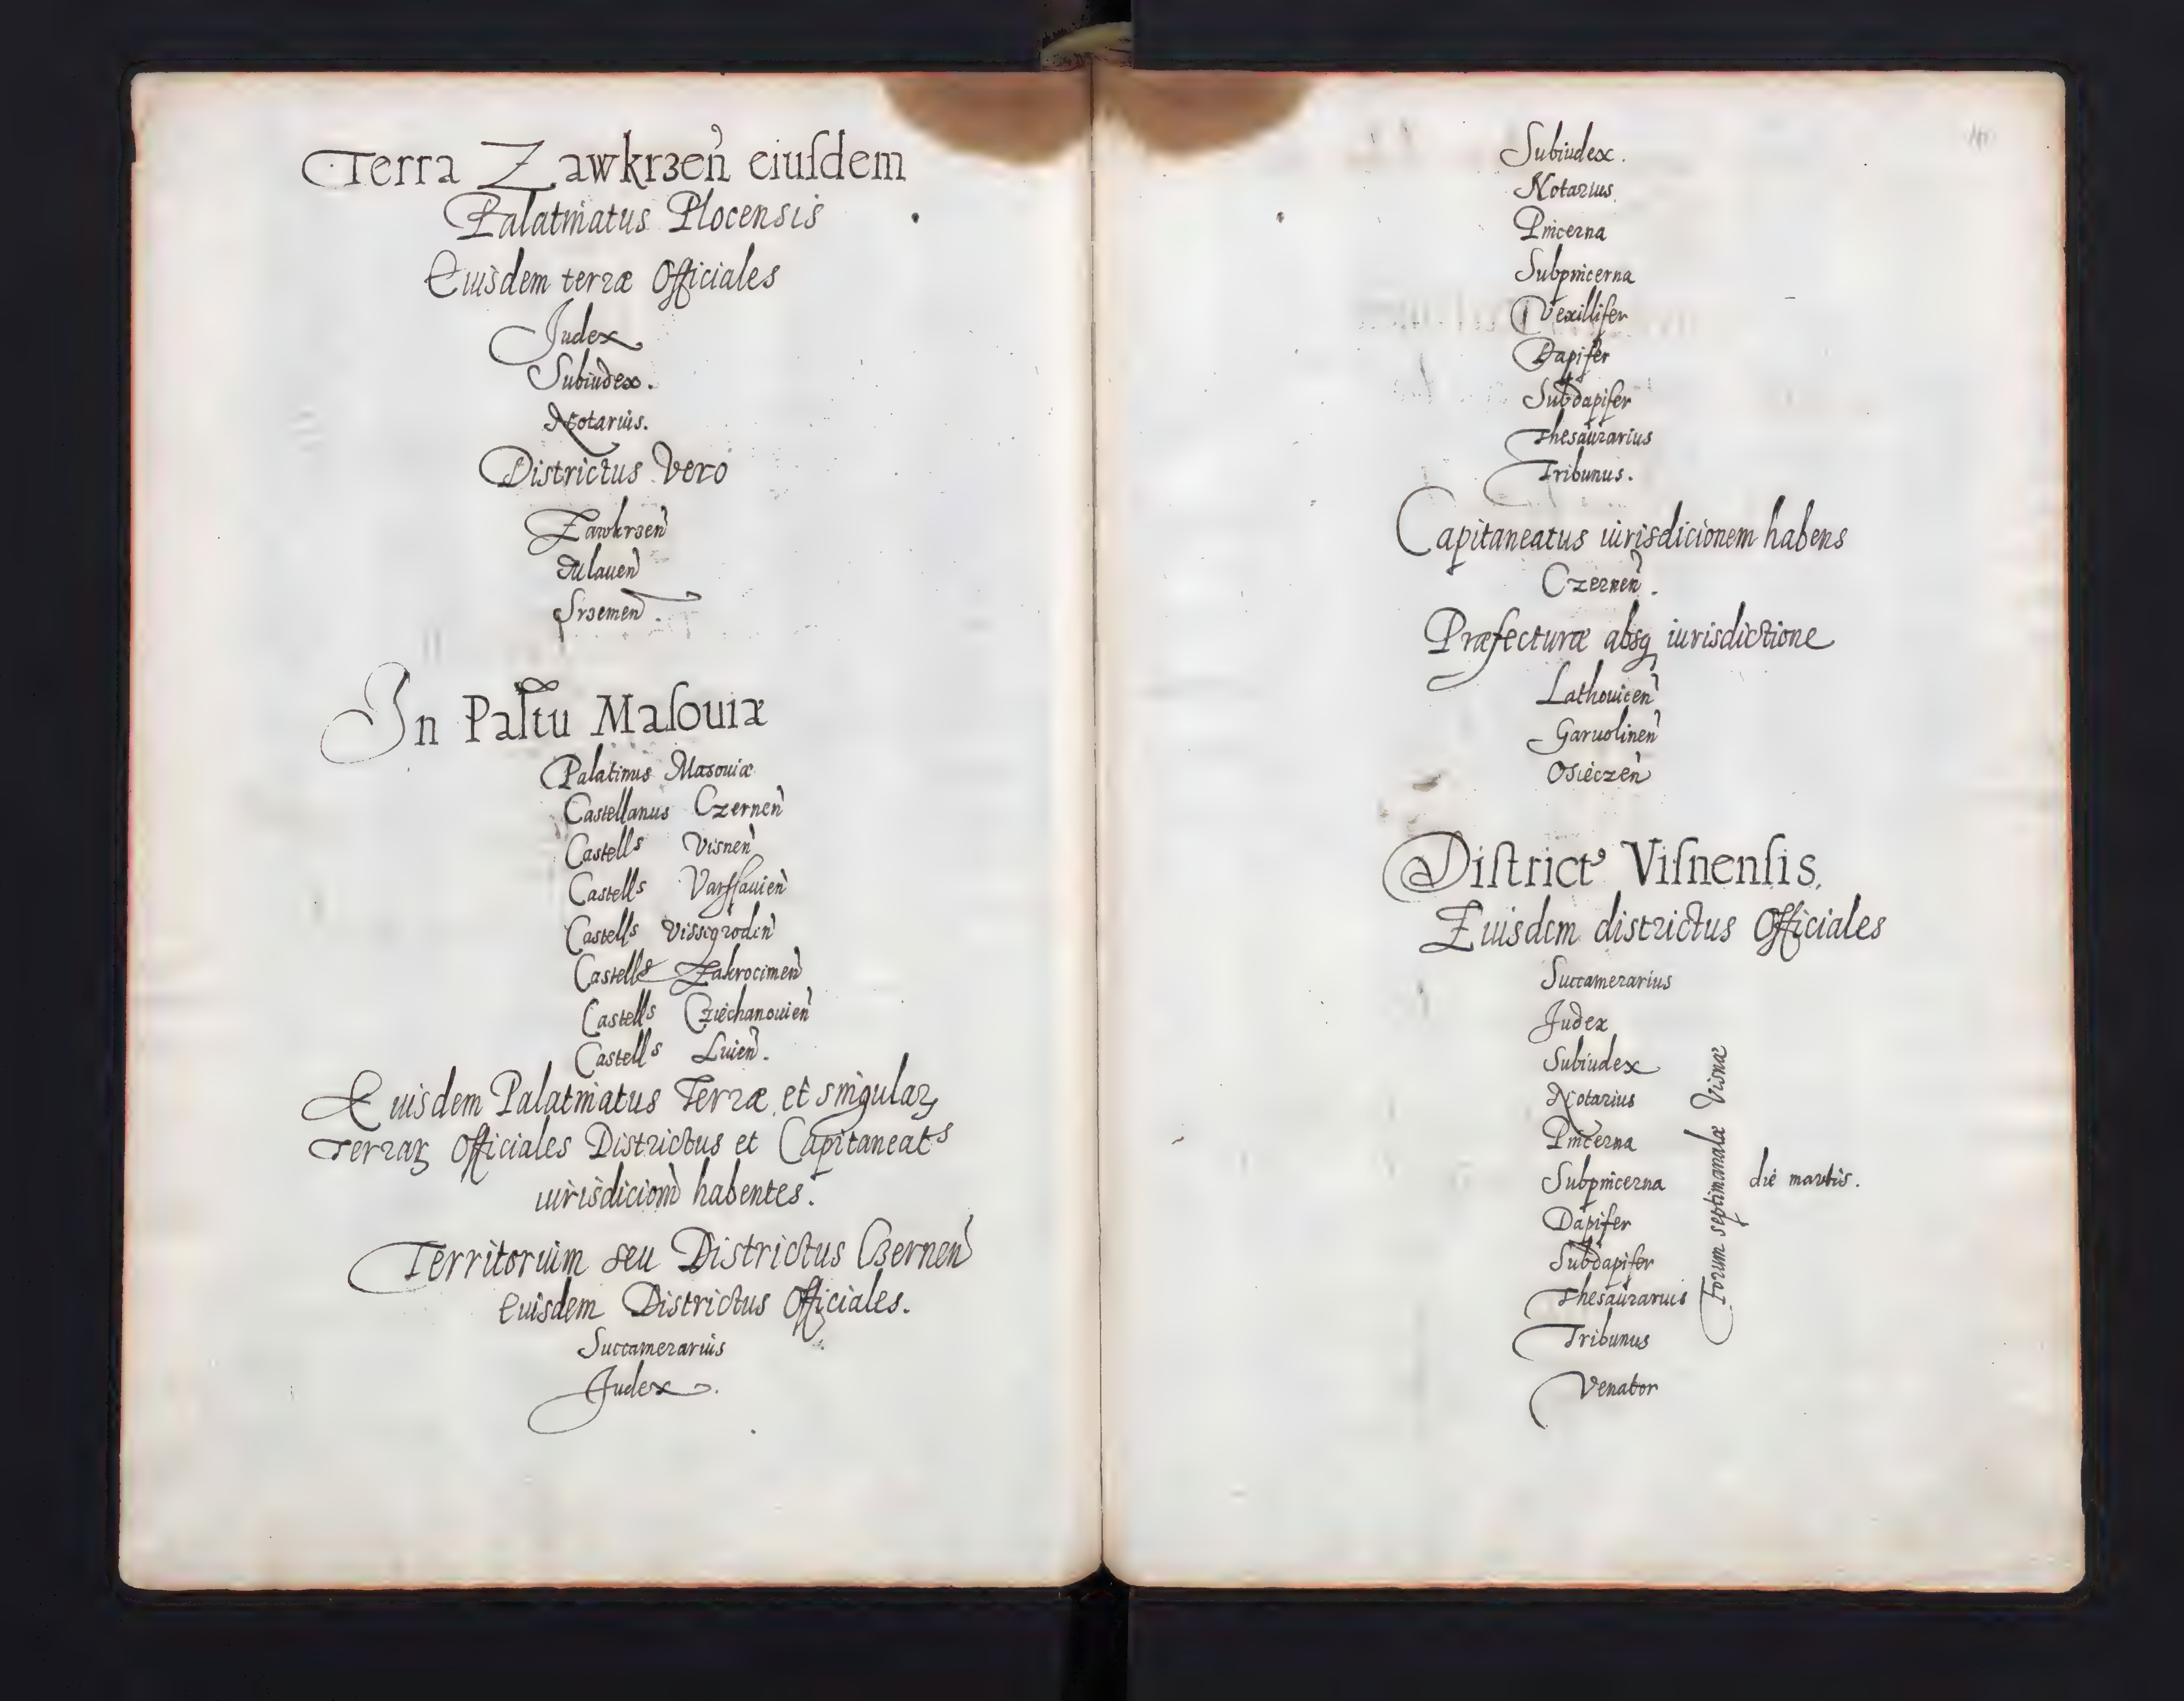 Terra Zawkrzen̄ eiuſdem
Palatinatus Plocensis
Eiusdem terræ Officiales
Judex
Subiudex.
Notarius.
Districtus Vero
Zawkrzen̄
Mlauen̄
Srzemen̄.
In Paltu Maſouiæ
Palatinus Masouiæ
Castellanus Czernen̄
Castells Visnen̄
Castells Varssauien̄
Castells Vissegroden̄
Castells Zakrocimen̄
Castells Cziechanouien̄
Castells Luien̄.
Eiusdem Palatinatus Terræ et singulaꝝ
Terraꝝ Officiales Districtus et Capitaneats
iurisdicion̄ habentes.
Territorium seu Districtus Czernen̄
Eiusdem Districtus Officiales.
Succamerarius
Judex.
Subiudex.
Notarius.
Pincerna
Subpincerna
Vexillifer
Dapifer
Subdapifer
Thesaurarius
Tribunus.
Capitaneatus iurisdicionem habens
Czernen̄.
Præfecturæ absq iurisdictione
Lathouicen̄
Garuolinen̄
Osieczen̄
Diſtrictꝰ Viſnenſis.
Eiusdem districtus Officiales
Succamerarius
Judex
Subiudex
Notarius
Pincerna
Subpincerna
Dapifer
Subdapifer
Thesaurarius
Tribunus
Venator
Forum septimanalæ Visnæ
die martis.